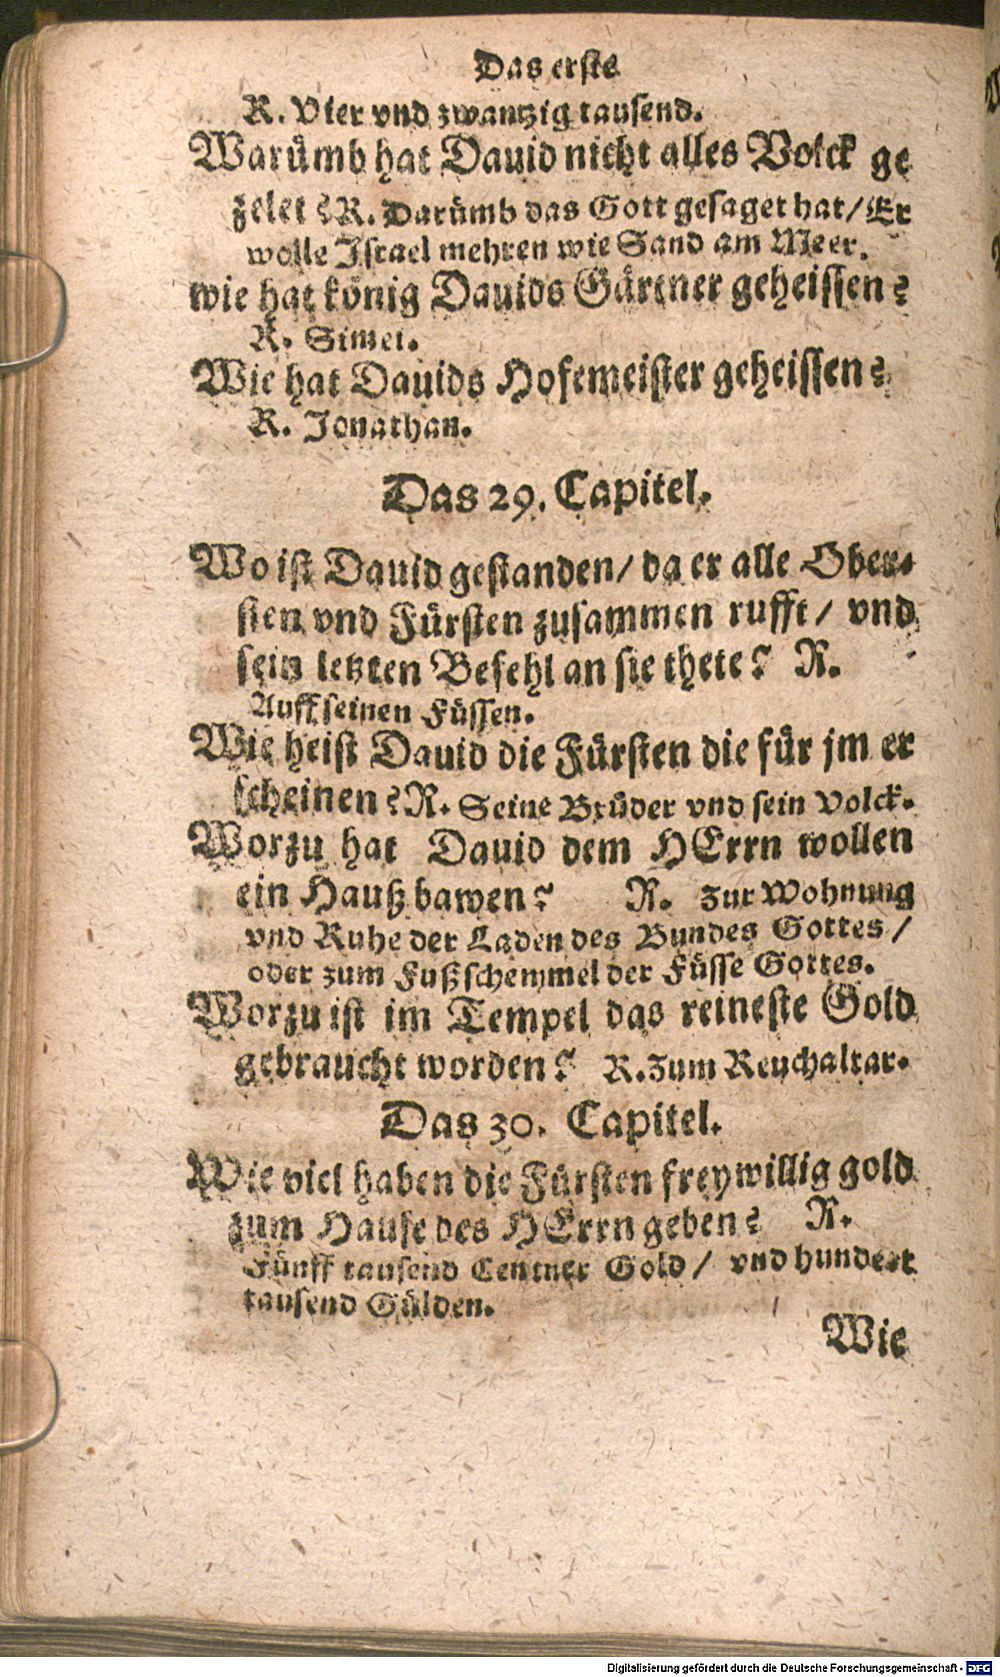 Das erste
R. Vier vnd zwantzig tausend.
Warümb hat Dauid nicht alles Volck ge
zelet? R. Darümb das Gott gesaget hat/ Er
wolle Israel mehren wie Sand am Meer.
wie hat könig Dauids Gärtner geheissen?
R. Simei.
Wie hat Dauids Hofemeister geheissen?
R. Jonathan.
Das 29. Capitel.
Wo ist Dauid gestanden/ da er alle Ober-
sten vnd Fürsten zusammen rufft/ vnd
sein letzten Befehl an sie thete? R.
Auff seinen Füssen.
Wie heist Dauid die Fürsten die für jm er
scheinen? R. Seine Brüder vnd sein Volck.
Worzu hat Dauid dem HErrn wollen
ein Hauß bawen? R. Zur Wohnung
vnd Ruhe der Laden des Bundes Gottes/
oder zum Fußschemmel der Füsse Gottes.
Worzu ist im Tempel das reineste Gold
gebraucht worden? R. Zum Reuchaltar.
Das 30. Capitel.
Wie viel haben die Fürsten freywillig gold
zum Hause des HErrn geben? R.
Fünff tausend Centner Gold/ vnd hundert
tausend Gülden.
Wie
Digitalisierung gefördert durch die Deutsche Forschungsgemeinschaft - DFG